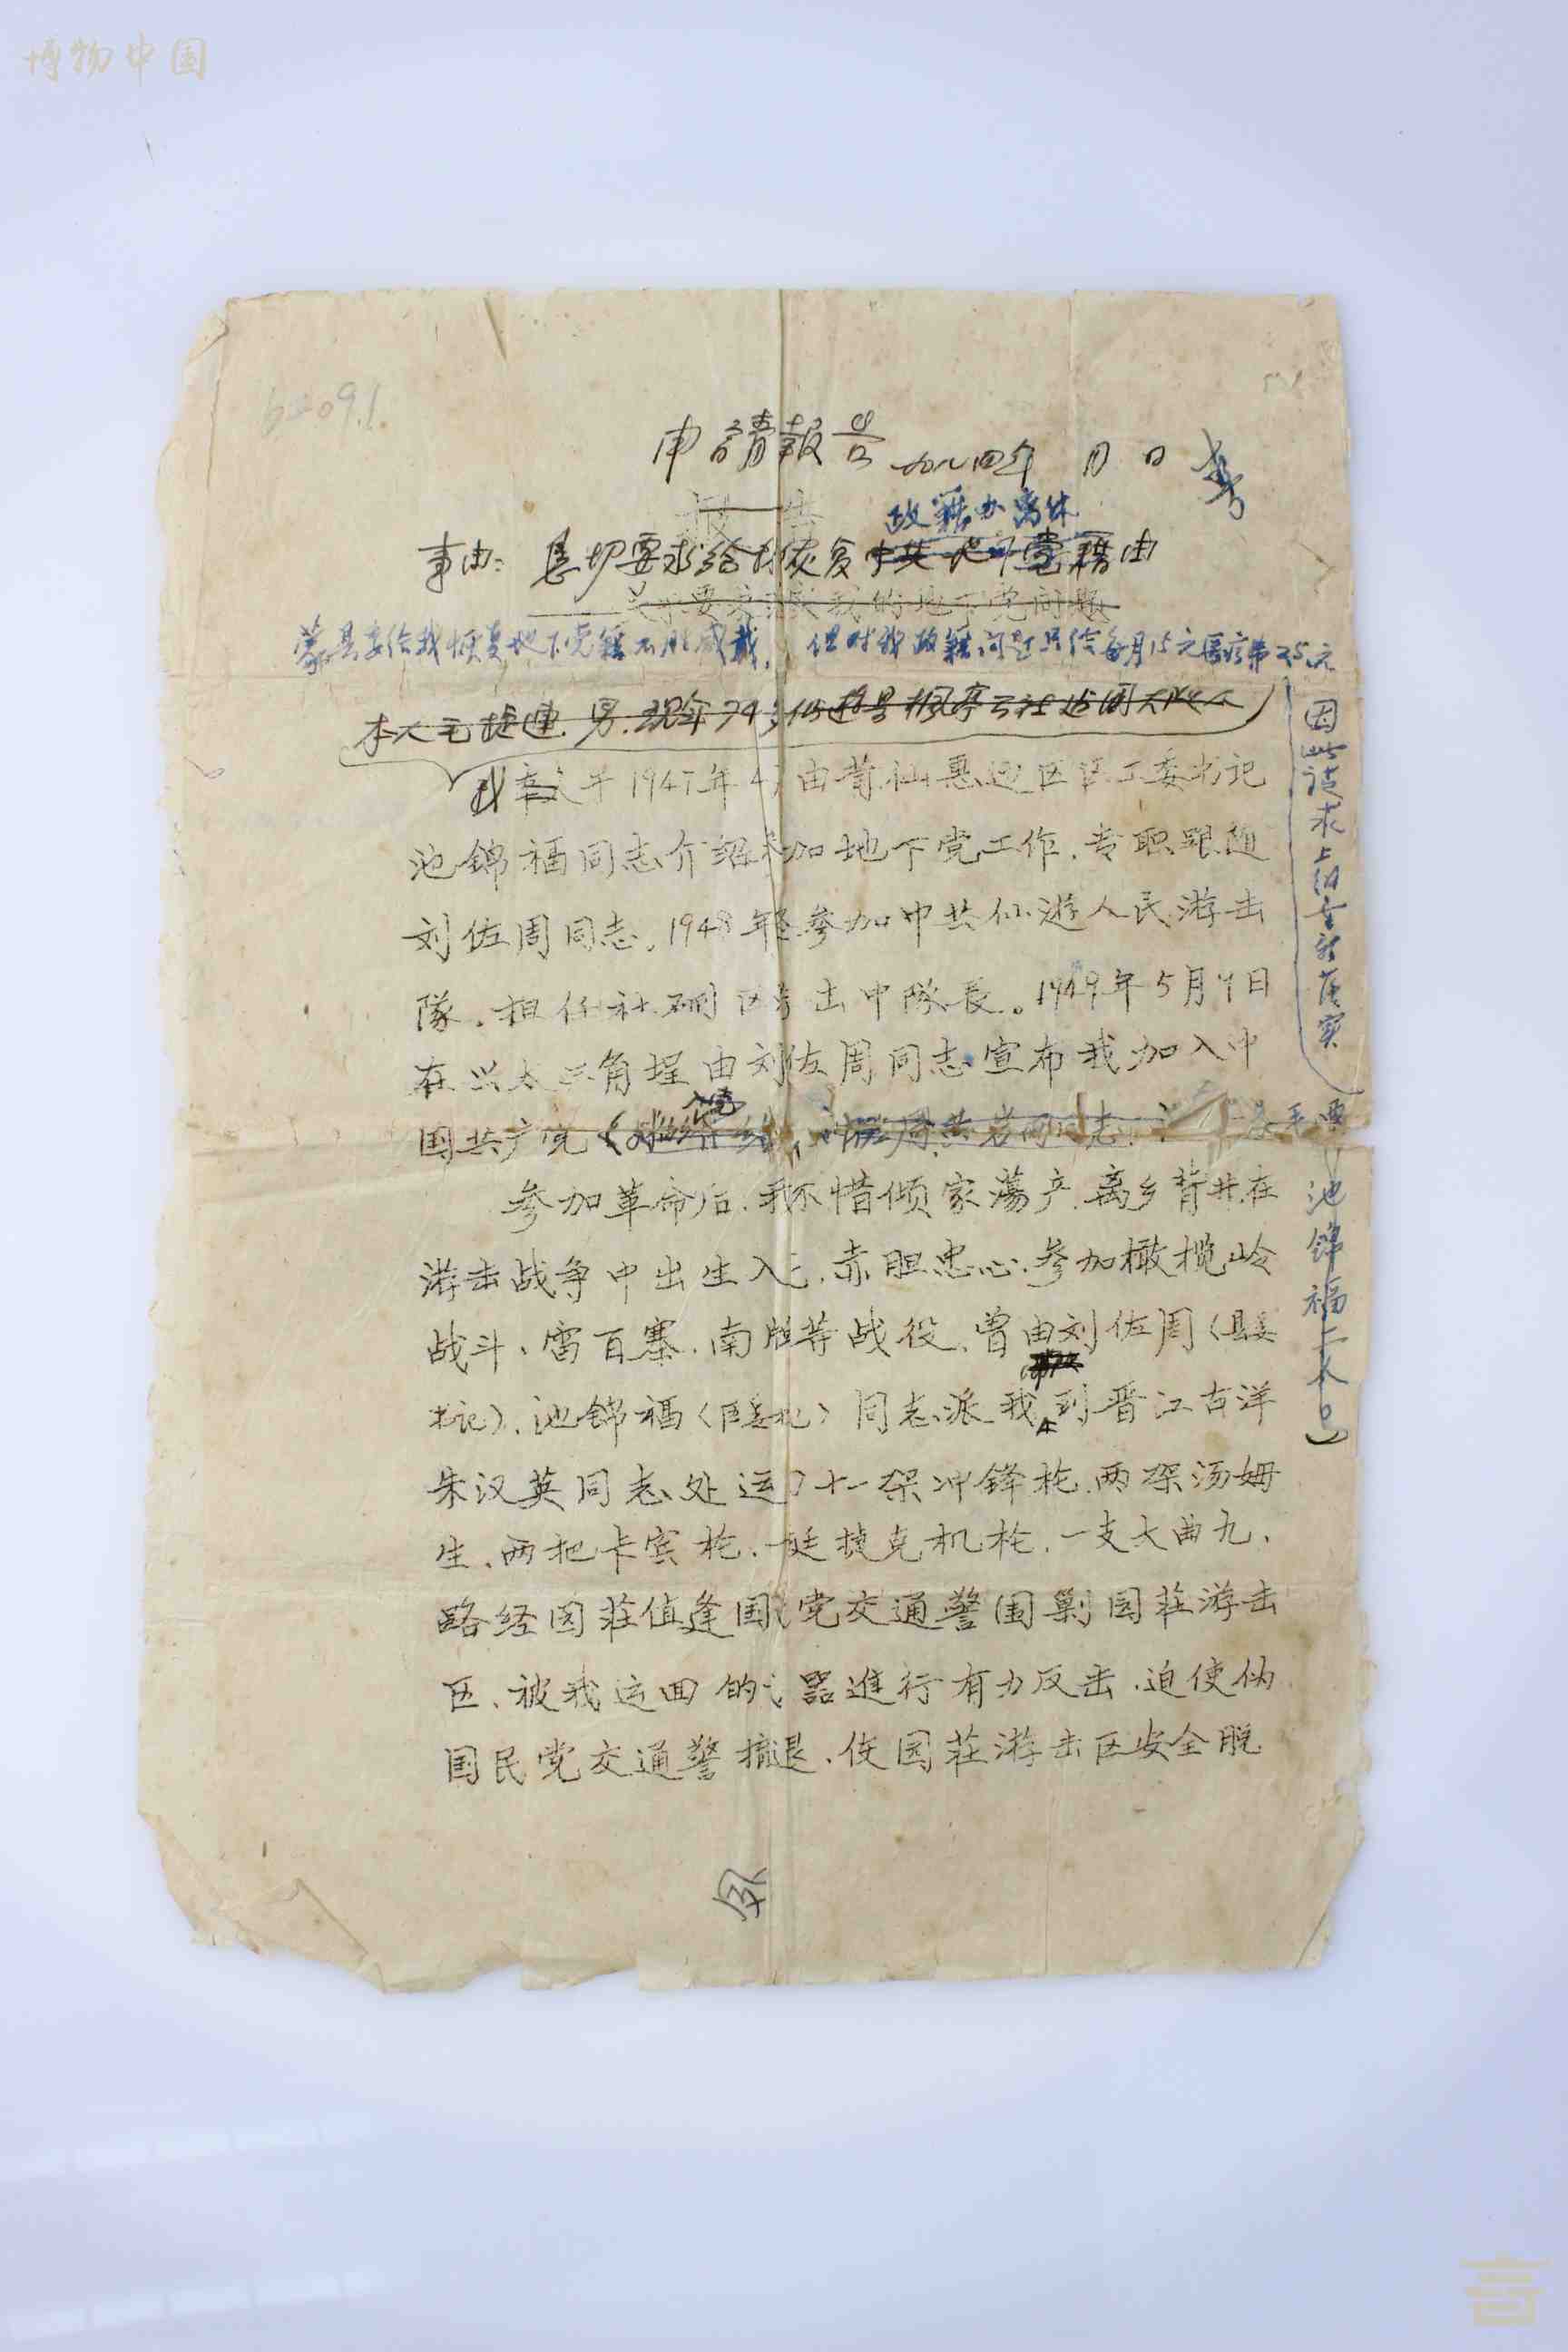 博物中国
6209.1.
申請報告 一九八四年 月 日
报告
政籍办离休
事由: 恳切要求给我恢复中共地下党籍由
关于要求 我的地下党问题
蒙县委给我恢复地下党籍不胜感戴, 但对我政籍问题只给每月15元医疗费25元
因此请求上级予我落实
本人毛捷連 男.现年74岁仙游县枫亭公社 大队人
我 于1947年4月由莆仙惠边区区工委书记
池錦福同志介绍参加地下党工作.专职跟随
刘佐周同志.1948年 参加中共仙游人民游击
隊.担任社硎区 中隊長。1949年5月9日
在兴太三角埕由刘佐周同志宣布我加入中
国共产党(入党
参加革命后.我不惜倾家蕩产.离乡背井.在
游击战争中出生入死.赤胆忠心.参加橄榄岭
战斗、雷百寨.南 等战役.曾由刘佐周(县委
书记)、池錦福(区委书记)同志派我到晋江古洋
朱汉英同志处运了十一架冲鋒枪.两架汤姆
生、两把卡宾枪.一挺捷克机枪.一支大曲九.
路经园莊值逢国民党交通警围剿园莊游击
区、被我运回的武器進行有力反击.迫使伪
国民党交通警撤退.使园莊游击区安全脱
池錦福二人
言